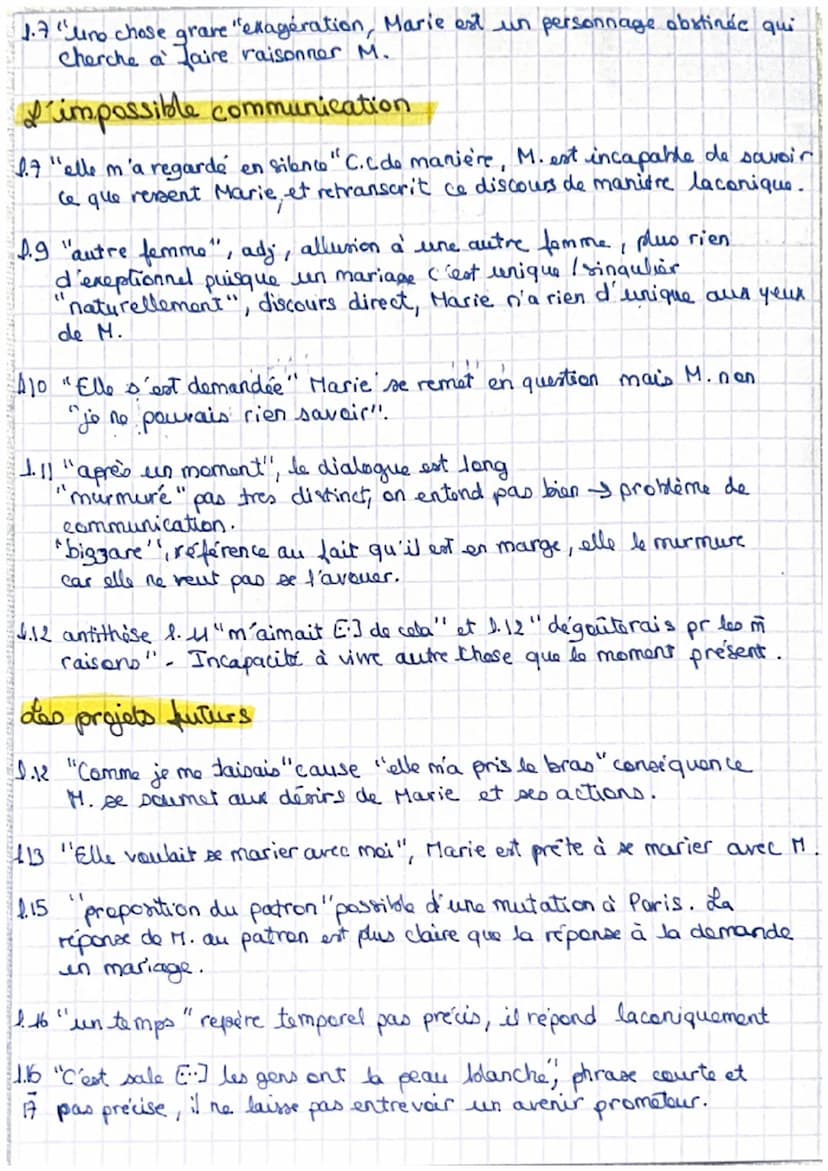 l.7 "une chose grave" exagération, Marie est un personnage obstinée qui
cherche à faire raisonner M.
L'impossible communication
l.7 "elle m'a regardé en silence" C.C de manière, M. est incapable de savoir
ce que ressent Marie, et retranscrit ce discours de manière laconique.
l.9 "autre femme", adj, allusion à une autre femme, plus rien
d'exeptionnel puisque un mariage c'est unique / singulier
"naturellement", discours direct, Marie n'a rien d'unique aux yeux
de M.
l.10 "Elle s'est demandée" Marie se remet en question mais M. non
"je ne pouvais rien savoir".
l.11 "après un moment", le dialogue est long
"murmuré" pas tres distinct, on entend pas bien → problème de
communication.
"biggare", référence au fait qu'il est en marge, elle le murmure
car elle ne veut pas se l'avouer.
l.12 antithèse l.11 "m'aimait [..] de cela" et l.12 "dégoûterais pr les m̄
raisons" - Incapacité à vivre autre chose que le moment présent.
Les projets futurs
l.12 "Comme je me taisais" cause "elle m'a pris le bras" conséquence
M. se soumet aux désirs de Marie et ses actions.
l.13 "Elle voulait se marier avec moi", Marie est prête à se marier avec M.
l.15 "proposition du patron" possible d'une mutation à Paris. La
réponse de M. au patron est plus claire que la réponse à la demande
en mariage.
l.16 "un temps" repère temporel pas précis, il répond laconiquement
l.16 "C'est sale [..] les gens ont la peau blanche", phrase courte et
17 pas précise, il ne laisse pas entrevoir un avenir prometeur.